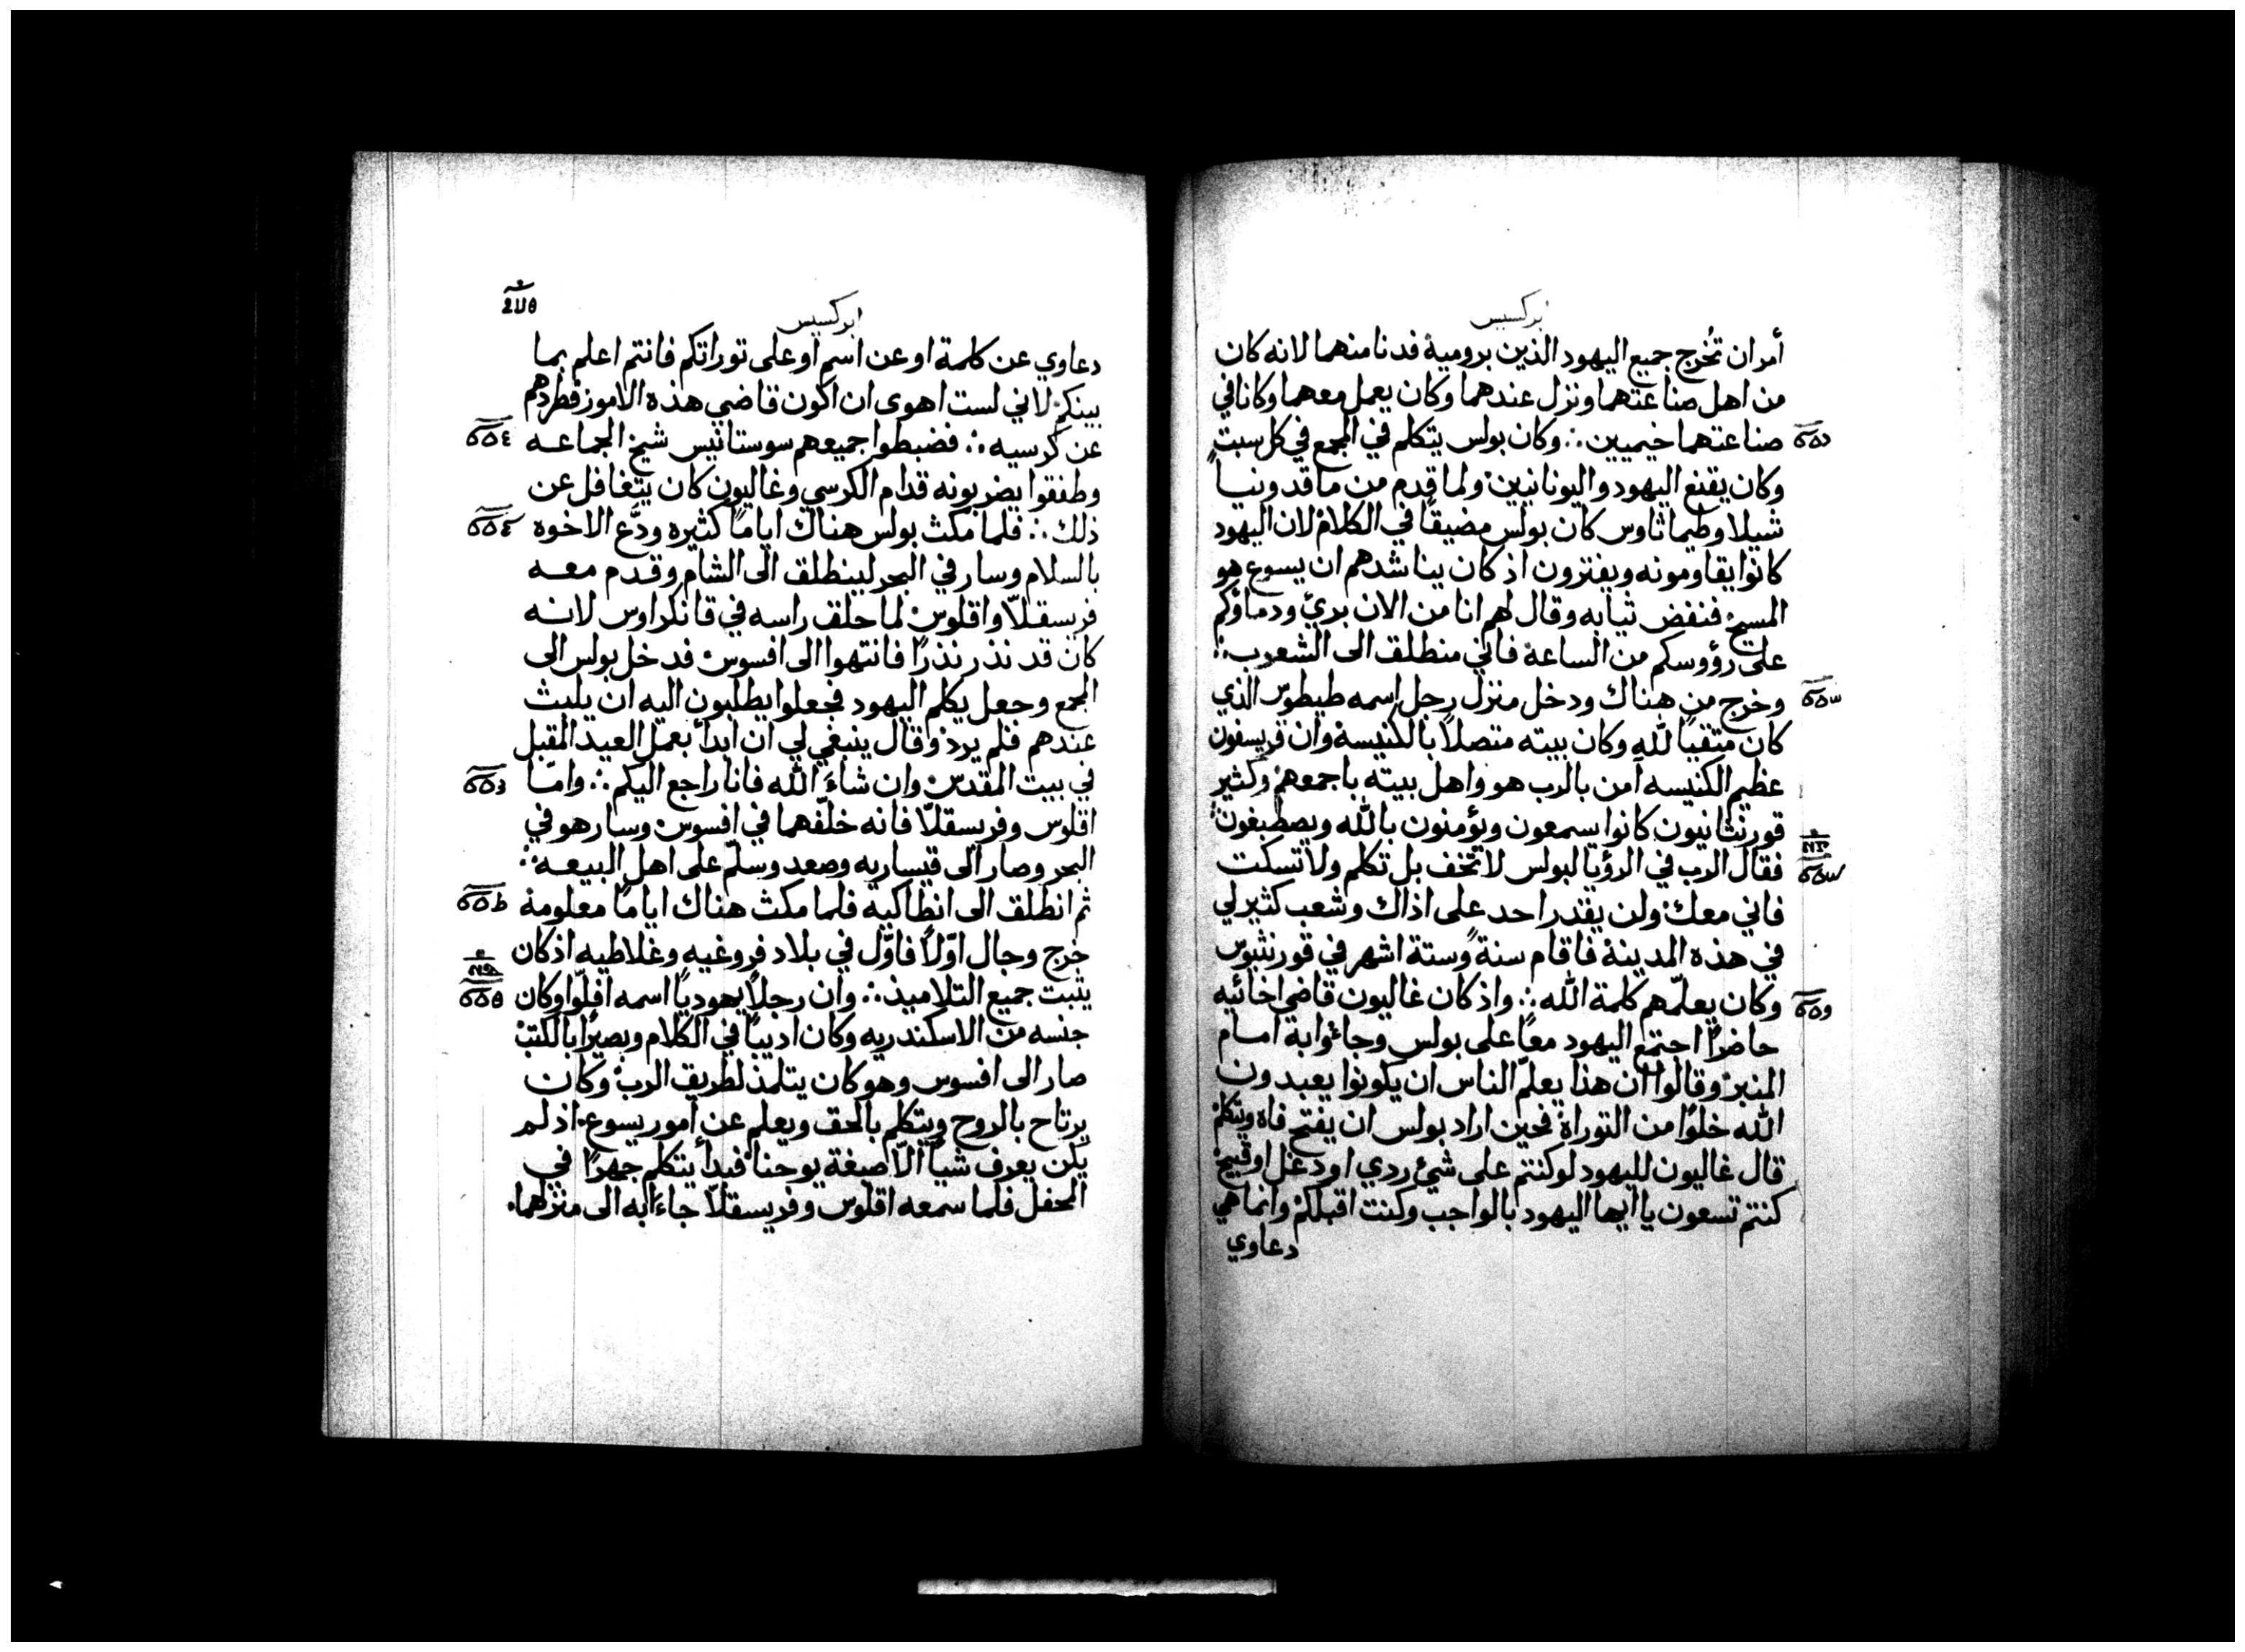 ابركسيس
أمر ان تُخرج جميع اليهود الذين برومية فدنا منهما لانه كان
من اهل صناعتهما ونزل عندهما وكان يعمل معهما وكانا في
صناعتهما خيميين ∴ وكان بولس يتكلم في المجمع في كل سبت
وكان يقنع اليهود واليونانيين ولما قدم من ماقدونيا
شيلا وطيماثاوس كان بولس مضيقًا في الكلام لان اليهود
كانوا يقاومونه ويفترون اذ كان يناشدهم ان يسوع هو
المسيح فنفض ثيابه وقال لهم انا من الان برئ ودماؤكم
على رؤوسكم من الساعة فاني منطلق الى الشعوب ∴
وخرج من هناك ودخل منزل رجل اسمه طيطوس الذي
كان متقيًا لله وكان بيته متصلاً بالكنيسة وان قريسفون
عظيم الكنيسه آمن بالرب هو واهل بيته باجمعهم وكثير
قورنثانيون كانوا يسمعون ويؤمنون بالله ويصطبغون
فقال الرب في الرؤيا لبولس لا تخف بل تكلم ولا تسكت
فاني معك ولن يقدر احد على اذاك وشعب كثير لي
في هذه المدينة فاقام سنةً وستة اشهر في قورنثيوس
وكان يعلّمهم كلمة الله ∴ واذ كان غاليون قاضي اخائيه
حاضرًا اجتمع اليهود معًا على بولس وجاءوا به امام
المنبر وقالوا ان هذا يعلّم الناس ان يكونوا يعبدون
الله خلوًا من التوراة فحين اراد بولس ان يفتح فاه ويتكلم
قال غاليون لليهود لو كنتم على شئ ردي او دغل او قبيح
كنتم تسعون يا ايها اليهود بالواجب وكنت اقبلكم وانما هي
دعاوي
ابركسيس
دعاوي عن كلمة او عن اسم او على توراتكم فانتم اعلم بما
بينكم لاني لست اهوى ان اكون قاضي هذه الامور فطردهم
عن كرسيه ∴ فضبطوا جميعهم سوستانيس شيخ الجماعه
وطفقوا يضربونه قدام الكرسي وغاليون كان يتغافل عن
ذلك ∴ فلما مكث بولس هناك ايامًا كثيره ودّع الاخوه
بالسلام وسار في البحر لينطلق الى الشام وقدم معه
فريسقلّا واقلوس لما حلق راسه في قانكراوس لانه
كان قد نذر نذرًا فانتهوا الى افسوس فدخل بولس الى
المجمع وجعل يكلم اليهود فجعلوا يطلبون اليه ان يلبث
عندهم فلم يرد وقال ينبغي لي ان ابدأ بعمل العيد المقبل
في بيت المقدس وان شاءَ الله فانا راجع اليكم ∴ وامّا
اقلوس وفريسقلّا فانه خلّفهما في افسوس وسار هو في
البحر وصار الى قيساريه وصعد وسلّم على اهل البيعه ∴
ثم انطلق الى انطاكيه فلما مكث هناك ايامًا معلومة
خرج وجال اوّلاً فاوّل في بلاد فروغيه وغلاطيه اذ كان
يثبت جميع التلاميذ ∴ وان رجلاً يهوديًا اسمه افلّوا وكان
جنسه من الاسكندريه وكان اديبًا في الكلام وبصيرًا بالكتب
صار الى افسوس وهو كان يتلمذ لطريق الرب وكان
يرتاح بالروح ويتكلم بالحق ويعلم عن أمور يسوع اذ لم
يكن يعرف شيأً الّا صبغة يوحنا فبدأ يتكلم جهرًا في
المحفل فلما سمعه اقلوس وفريسقلّا جاءا به الى منزلهما